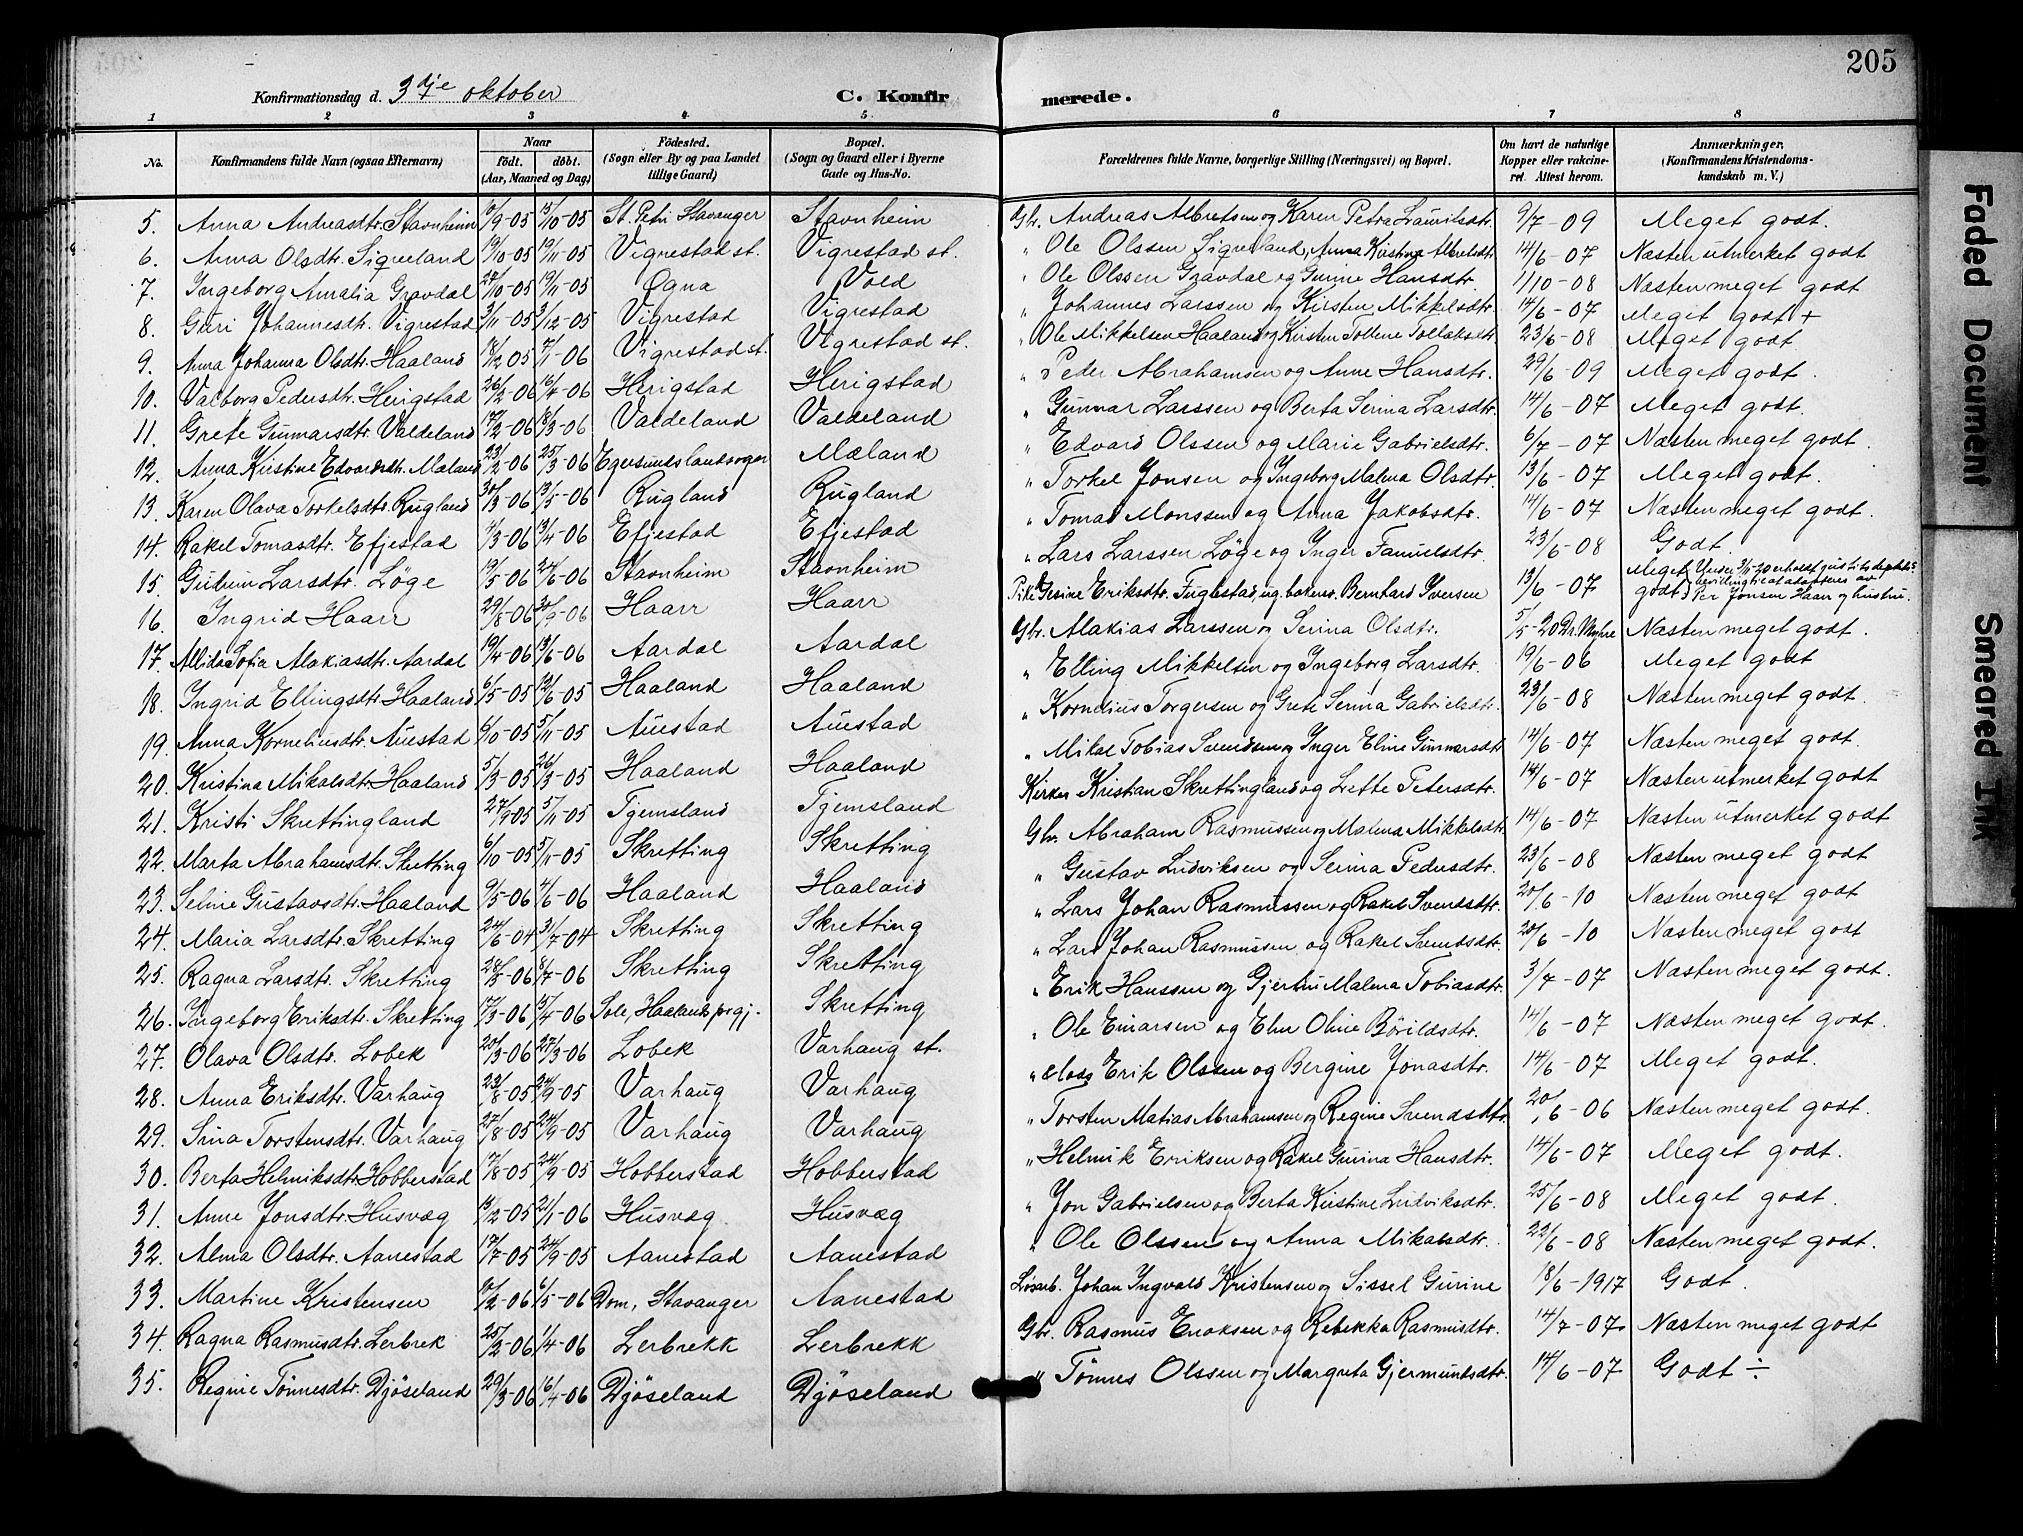 205
Konfirmationsdag d. 3dje oktober C. Konfirmerede.
1 2 3 4 5 6 7 8
No. Konfirmandens fulde Navn (ogsaa Efternavn) Naar födt. döbt. (Aar, Maaned og Dag) Födested. (Sogn eller By og paa Landet tillige Gaard) Bopæl. (Sogn og Gaard eller i Byerne Gade og Hus-No. Forældrenes fulde Navne, borgerlige Stilling (Næringsvei) og Bopæl. Om havt de naturlige Kopper eller vakcineret. Attest herom. Anmærkninger, (Konfirmandens Kristendomskundskab m. V.)
5. Anna Andreasdtr. Stavnheim /9-05 15/10-05 St. Petri Stavanger Stavnheim Gbr. Andreas Albretsen og Karen Petra Lauritsdtr. 9/7-09 Meget godt.
6. Anna Olsdtr. Sigveland 19/10-05 19/11-05 Vigrestad st. Vigrestad st. " Ole Olssen Sigveland, Anna Kristine Albretsdtr 14/6-07 Næsten utmerket godt
7. Ingeborg Amalia Gravdal /10-05 19/11-05 Ogna Vold " Ole Olssen Gravdal og Gunne Hansdtr. 1/10-08 Næsten meget godt.
8. Guri Johannesdtr. Vigrestad 3/11-05 3/12-05 Vigrestad Vigrestad " Johannes Larssen og Kirsten Mikkelsdtr. 14/6-07 Meget godt +
9. Anna Johanna Olsdtr. Haaland /12 05 7/1-06 Vigrestad st. Vigrestad st. " Ole Mikkelsen Haaland og Kirsten Tollaksdtr 23/6-08 Meget godt
10. Valborg Pedersdtr. Herigstad 26/2-06 16/4-06 Herigstad Herigstad " Peder Abrahamsen og Anne Hansdtr. 29/6-09 Meget godt.
11. Grete Gunnarsdtr. Valdeland 12/2-06 18/3-06 Valdeland Valdeland " Gunnar Larssen og Berta Serina Larsdtr. 14/6-07 Meget godt.
12. Anna Kristine Edvardsdtr. Mæland 23/2-06 25/3-06 Egersunds landsogn Mæland " Edvard Olssen og Marie Gabrielsdtr. 6/7-07 Næsten meget godt.
13. Karen Olava Torkelsdtr. Rugland 30/3-06 13/5-06 Rugland Rugland " Torkel Jonsen og Ingeborg Malena Olsdtr. 13/6-07 Meget godt.
14. Rakel Tomasdtr. Efjestad 4/3-06 13/4-06 Efjestad Efjestad " Tomas Monssen og Anna Jakobsdtr. 14/6-07 Næsten meget godt.
15. Gudrun Larsdtr. Löge 19/5-06 24/6-06 Stavnheim Stavnheim " Lars Larssen Löge og Inger Famuelsdtr. 23/6-08 Godt.
16. Ingrid Haarr 29/8-06 30/9-06 Haarr Haarr Pike Gesine Eriksdtr. Fuglestad, ug. Bernhard Iversen 13/6-07 Meget godt. Under 3/11-20 erholdt justitsdeptets bevilling til at adopteres av Per Jonsen Haar og hustru.
17. Allida Sofia Alakiasdtr. Aardal 19/4-06 13/6-06 Aardal Aardal Gbr. Alakias Larssen og Serina Olsdtr. 5/5-20 Dr. Myhre Næsten meget godt.
18. Ingrid Ellingsdtr. Haaland 6/5-05 12/6-05 Haaland Haaland " Elling Mikkelsen og Ingeborg Larsdtr. 19/6-06 Meget godt
19. Anna Korneliusdtr. Auestad 6/10-05 5/11-05 Auestad Auestad " Kornelius Torgersen og Grete Serina Gabrielsdtr. 23/6-08 Næsten meget godt.
20. Kristina Mikalsdtr. Haaland 5/3-05 26/3-05 Haaland Haaland " Mikal Tobias Svendsen og Inger Eline Gunnarsdtr. 14/6-07 Næsten meget godt.
21. Kristi Skrettingland 27/9 05 5/11-05 Tjemsland Tjemsland Kirkes. Kristian Skrettingland og Lette Petersdtr. 14/6-07 Næsten utmerket godt
22. Marta Abrahamsdtr. Skretting 6/10-05 5/11-05 Skretting Skretting Gbr. Abraham Rasmussen og Malena Mikkelsdtr. 14/6-07 Næsten utmerket godt
23. Seline Gustavsdtr. Haaland 9/5-06 4/6-06 Haaland Haaland " Gustav Ludviksen og Serina Pedersdtr. 23/6-08 Næsten meget godt
24. Maria Larsdtr. Skretting 24/6-04 31/7-04 Skretting Skretting " Lars Johan Rasmussen og Rakel Svendsdtr. 20/6-10 Næsten meget godt
25. Ragna Larsdtr. Skretting /5-06 8/7-06 Skretting Skretting " Lars Johan Rasmussen og Rakel Svendsdtr. 20/6-10 Næsten meget godt
26. Ingeborg Eriksdtr. Skretting 17/3-06 15/4-06 Sole, Haalands prgj. Skretting " Erik Hanssen og Gjertrui Malena Tobiasdtr. 3/7-07 Næsten meget godt.
27. Olava Olsdtr. Lobek 20/3-06 27/3-06 Lobek Varhaug st. " Ole Einarsen og Elen Oline Börildsdtr. 14/6-07 Næsten meget godt.
28. Anna Eriksdtr. Varhaug 23/8-05 24/9-05 Varhaug Varhaug " Erik Olssen og Bergine Jonasdtr. 14/6-07 Meget godt.
29. Sina Torstensdtr. Varhaug 27/8-05 24/9-05 Varhaug Varhaug " Torsten Matias Abrahamsen og Regine Svendsdtr. 20/6-06 Næsten meget godt.
30. Berta Helmiksdtr. Hobberstad 17/8-05 24/9-05 Hobberstad Hobberstad " Helmik Eriksen og Rakel Gurina Hansdtr. 14/6-07 Meget godt.
31. Anne Jonsdtr. Husvæg 13/12-05 21/1-06 Husvæg Husvæg " Jon Gabrielsen og Berta Kristine Ludviksdtr. 25/6-08 Meget godt.
32. Alma Olsdtr. Aanestad 17/7-05 24/9-05 Aanestad Aanestad " Ole Olssen og Anna Mikalsdtr. 22/6-08 Næsten meget godt.
33. Martine Kristensen /2-06 6/5-06 Dom, Stavanger Aanestad Løsarb. Johan Ingvald Kristensen og Sissel Gurine 18/6-1917 Godt.
34. Ragna Rasmusdtr. Lerbrek 25/2-06 1/4-06 Lerbrekk Lerbrekk Gbr. Rasmus Enoksen og Rebekka Rasmusdtr. 14/7-07. Næsten meget godt
35. Regine Tönnesdtr. Djöseland 29/3-06 16/4-06 Djöseland Djöseland " Tönnes Olssen og Margreta Gjermundsdtr. 14/6-07 Godt ÷
Faded Document
Smeared Ink